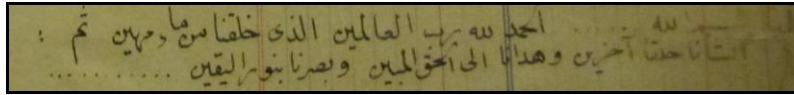 بسم الله ...... الحمد لله رب العالمين الذى خلقنا من ماء مهين ثم :
انشأنا خلقا آخرين وهدانا الى الحق المبين وبصرنا بنور اليقين ...........